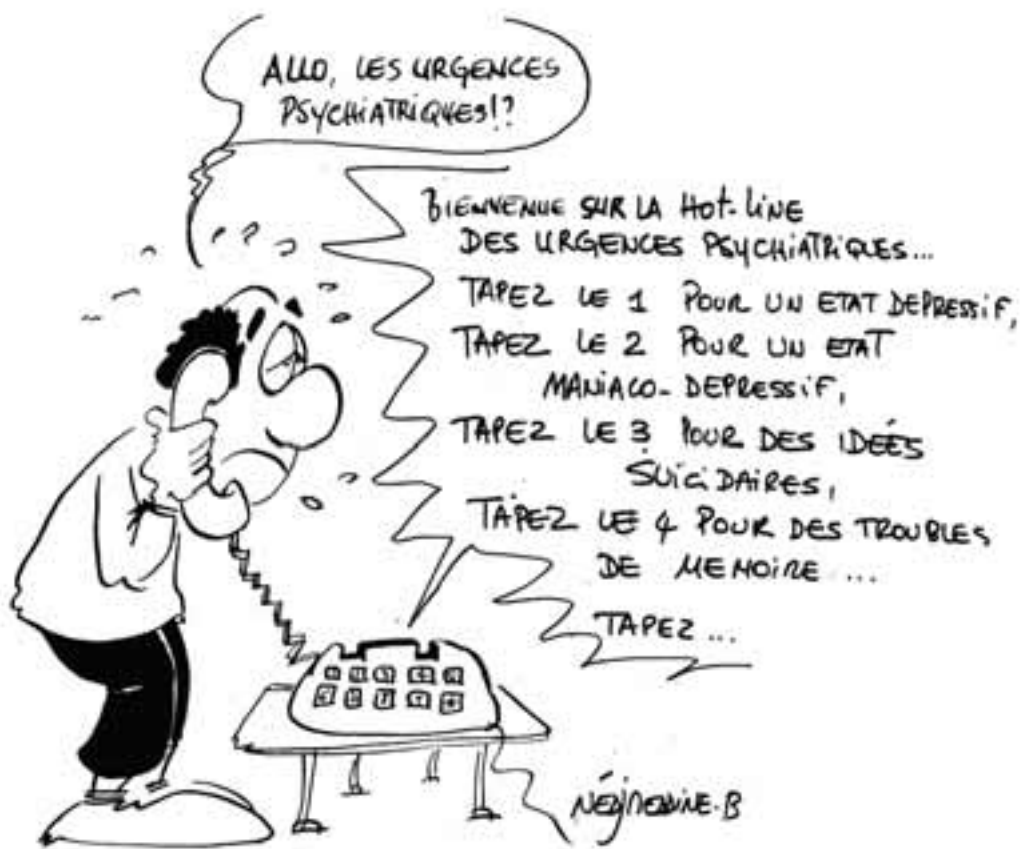 ALLO, LES URGENCES
PSYCHIATRIQUES!?
BIENVENUE SUR LA HOT-LINE
DES URGENCES PSYCHIATRIQUES...
TAPEZ LE 1 POUR UN ETAT DEPRESSIF,
TAPEZ LE 2 POUR UN ETAT
MANIACO-DEPRESSIF,
TAPEZ LE 3 POUR DES IDEÉS
SUICIDAIRES,
TAPEZ LE 4 POUR DES TROUBLES
DE MEMOIRE ...
TAPEZ ...